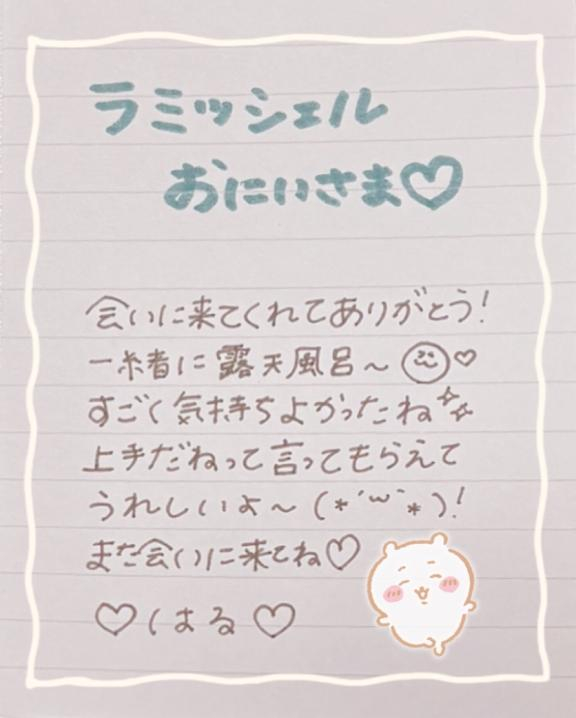 ラミッシェル
おにいさま♡
会いに来てくれてありがとう!
一緒に露天風呂～♡
すごく気持ちよかったね✨
上手だねって言ってもらえて
うれしいよ～(*´꒳`*)!
また会いに来てね♡
♡はる♡